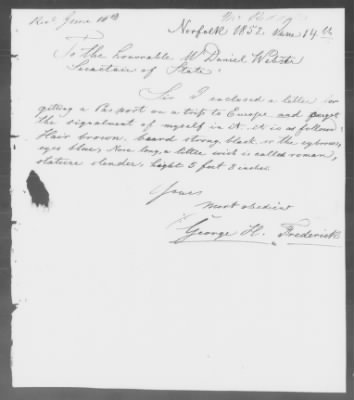 Recd June 18th
Norfolk 1852 June 14th
To the Honorable Mr Daniel Webster
Secretair of State.
Sir I enclosed a letter for
getting a Pasport on a trip to Europe and forgot
the signalment of myself in it. it is as follows:
Hair brown, beard strong, black, so the eyebrows,
eyes blue, Nose long, a little wich is called roman,
stature slender, hight 5 feet 8 inches.
Yours
Most obedient
George H. Frederick